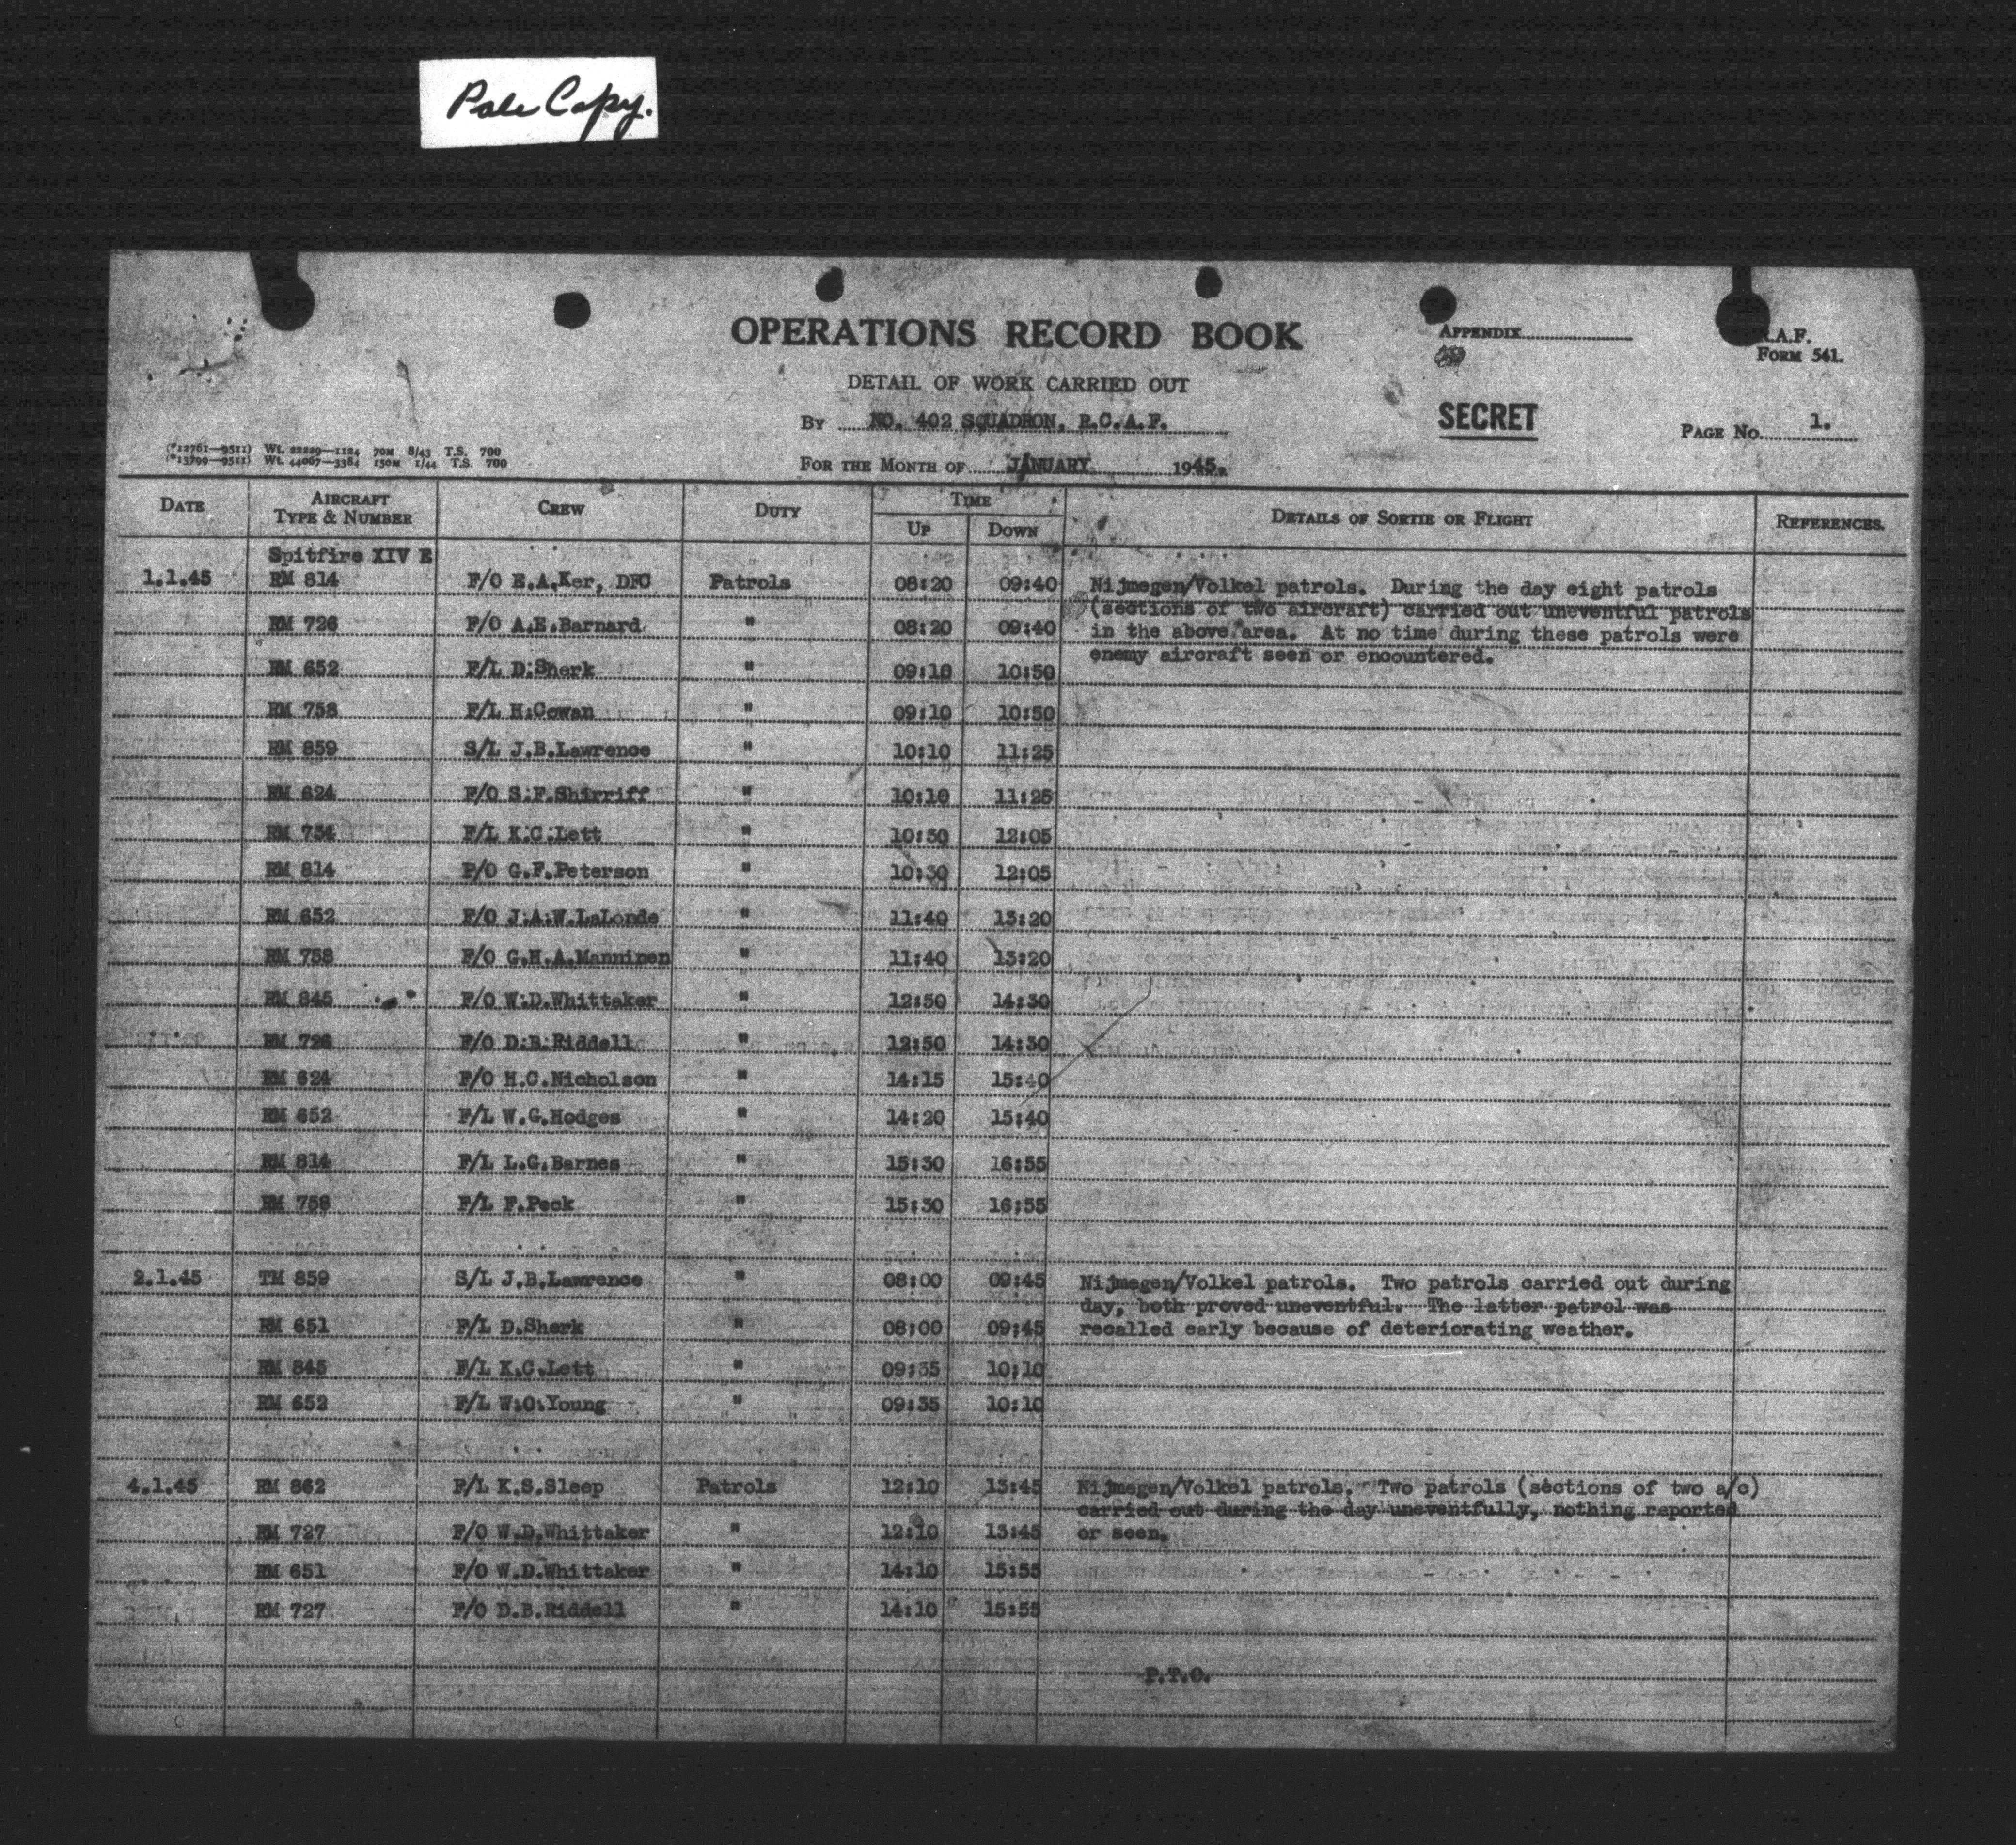 Pale Copy.
OPERATIONS RECORD BOOK
APPENDIX
R.A.F.
FORM 541.
DETAIL OF WORK CARRIED OUT
BY NO. 402 SQUADRON, R.C.A.F.
SECRET
PAGE No. 1.
(*12761—9511) Wt. 22229—1124 70M 8/43 T.S. 700
(*13799—9511) Wt. 44067—3384 150M 1/44 T.S. 700
FOR THE MONTH OF JANUARY 1945.
DATE AIRCRAFT TYPE & NUMBER CREW DUTY TIME UP DOWN DETAILS OF SORTIE OR FLIGHT REFERENCES.
Spitfire XIV E
1.1.45 RM 814 F/O E.A.Ker, DFC Patrols 08:20 09:40 Nijmegen/Volkel patrols. During the day eight patrols
(sections of two aircraft) carried out uneventful patrols
RM 726 F/O A.E.Barnard " 08:20 09:40 in the above area. At no time during these patrols were
enemy aircraft seen or encountered.
RM 652 F/L D.Sherk " 09:10 10:50
RM 758 F/L H.Cowan " 09:10 10:50
RM 859 S/L J.B.Lawrence " 10:10 11:25
RM 624 F/O S.F.Shirriff " 10:10 11:25
RM 734 F/L K.C.Lett " 10:30 12:05
RM 814 P/O G.F.Peterson " 10:30 12:05
RM 652 F/O J.A.W.LaLonde " 11:40 13:20
RM 758 F/O G.H.A.Manninen " 11:40 13:20
RM 845 F/O W.D.Whittaker " 12:50 14:30
RM 726 F/O D.B.Riddell " 12:50 14:30
RM 624 F/O H.C.Nicholson " 14:15 15:40
RM 652 F/L W.G.Hodges " 14:20 15:40
RM 814 F/L L.G.Barnes " 15:30 16:55
RM 758 F/L F.Peck " 15:30 16:55
2.1.45 TM 859 S/L J.B.Lawrence " 08:00 09:45 Nijmegen/Volkel patrols. Two patrols carried out during
day, both proved uneventful. The latter patrol was
RM 651 F/L D.Sherk " 08:00 09:45 recalled early because of deteriorating weather.
RM 845 F/L K.C.Lett " 09:35 10:10
RM 652 F/L W.O.Young " 09:35 10:10
4.1.45 RM 862 F/L K.S.Sleep Patrols 12:10 13:45 Nijmegen/Volkel patrols. Two patrols (sections of two a/c)
carried out during the day uneventfully, nothing reported
RM 727 F/O W.D.Whittaker " 12:10 13:45 or seen.
RM 651 F/O W.D.Whittaker " 14:10 15:55
RM 727 F/O D.B.Riddell " 14:10 15:55
P.T.O.